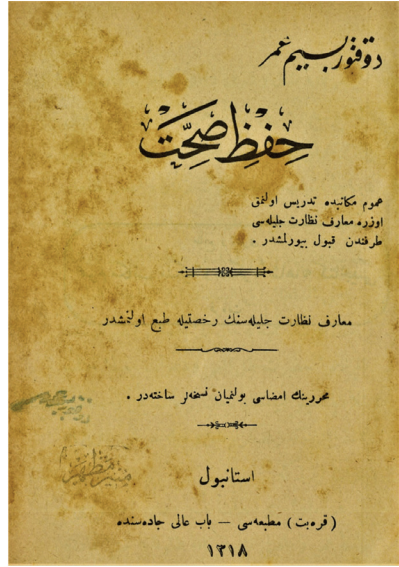 دوقتور بسیم عمر
حِفظِ صِحَّت
عموم مكاتبده تدریس اولنمق
اوزره معارف نظارت جلیله‌سی
طرفندن قبول بیورلمشدر .
معارف نظارت جلیله‌سنك رخصتیله طبع اولنمشدر
محررینك امضاسی بولنمیان نسخه‌لر ساخته‌در .
استانبول
(قره‌بت) مطبعه‌سی — باب عالی جاده‌سنده
١٣١٨